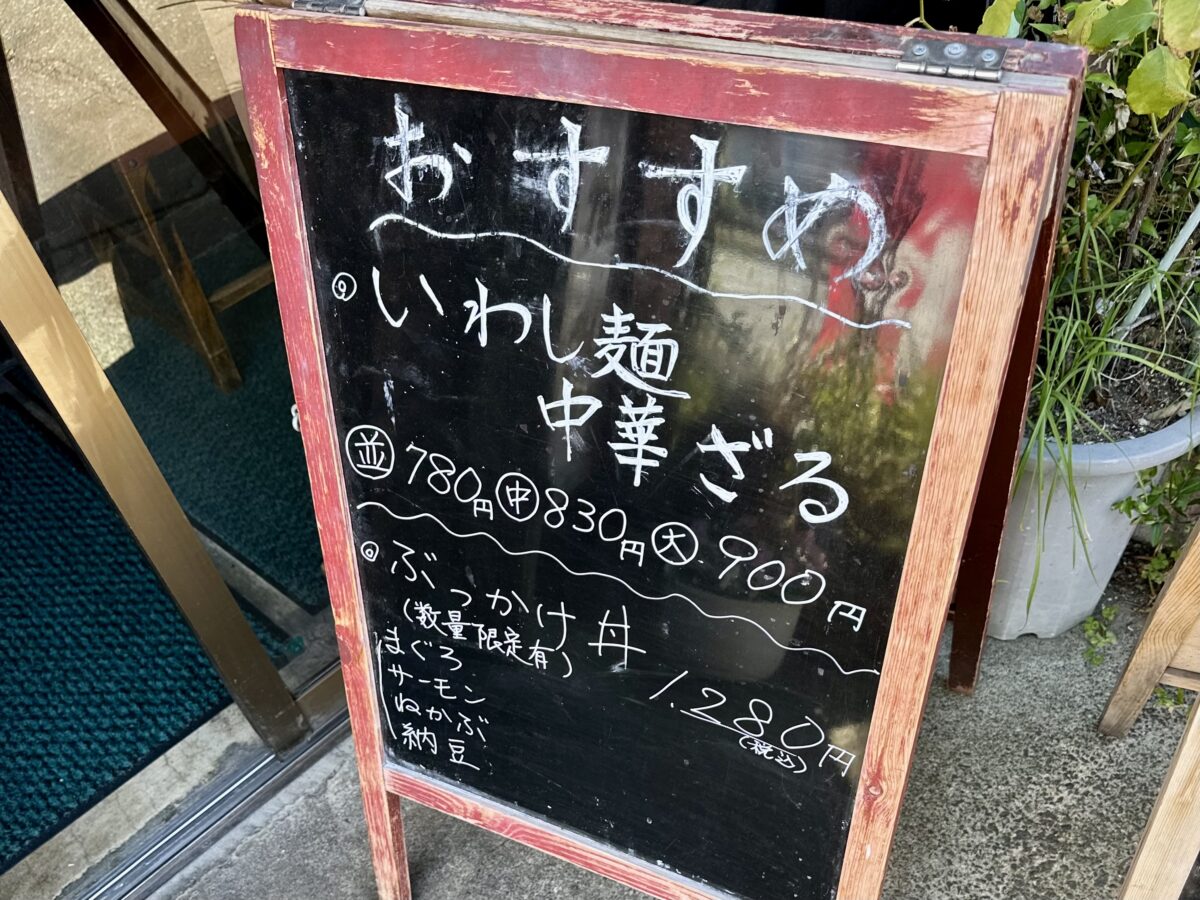 おすすめ
◎いわし麺
中華ざる
㊤並 780円 ㊥830円 大 900円
◎ぶっかけ丼
(数量限定有)
まぐろ
サーモン
ねかぶ
納豆
1.280円
(税込)